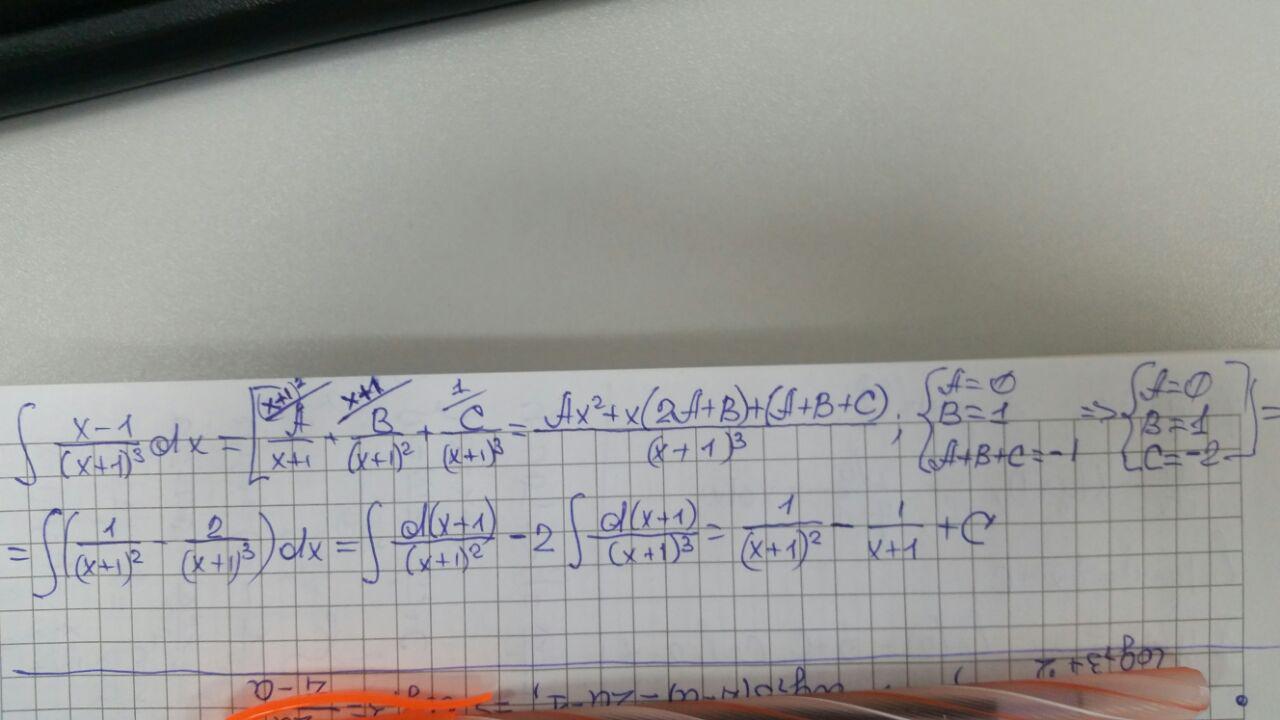 ∫ (x-1)/(x+1)³ dx = [ (x+1)² A/(x+1) + x+1 B/(x+1)² + 1 C/(x+1)³ = (Ax²+x(2A+B)+(A+B+C))/(x+1)³ ; { A=0 B=1 A+B+C=-1 => { A=0 B=1 C=-2 ] =
= ∫ (1/(x+1)² - 2/(x+1)³) dx = ∫ d(x+1)/(x+1)² - 2 ∫ d(x+1)/(x+1)³ = 1/(x+1)² - 1/(x+1) + C